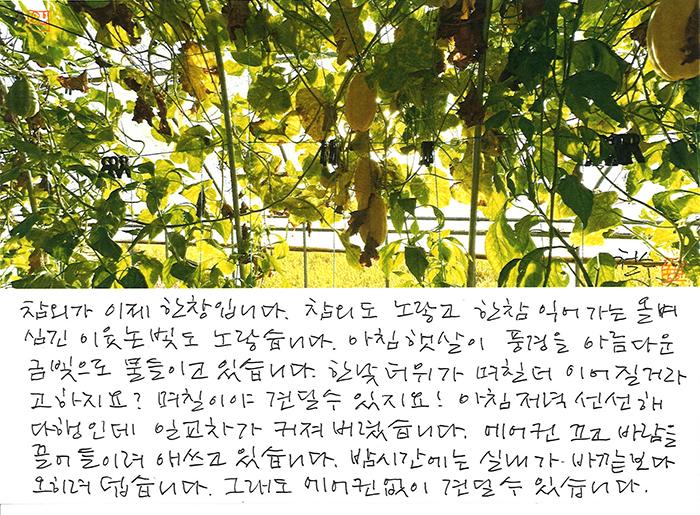 철수
참외가 이제 한창입니다. 참외도 노랗고 한참 익어가는 올벼
심긴 이웃논빛도 노랗습니다. 아침햇살이 풍경을 아름다운
금빛으로 물들이고 있습니다. 한낮더위가 며칠더 이어질거라
고하지요? 며칠이야 견딜수있지요! 아침저녁 선선해
다행인데 일교차가 커져 버렸습니다. 에어컨 끄고 바람을
끌어들이려 애쓰고 있습니다. 밤시간에는 실내가 바깥보다
오히려 덥습니다. 그래도 에어컨없이 견딜수 있습니다.